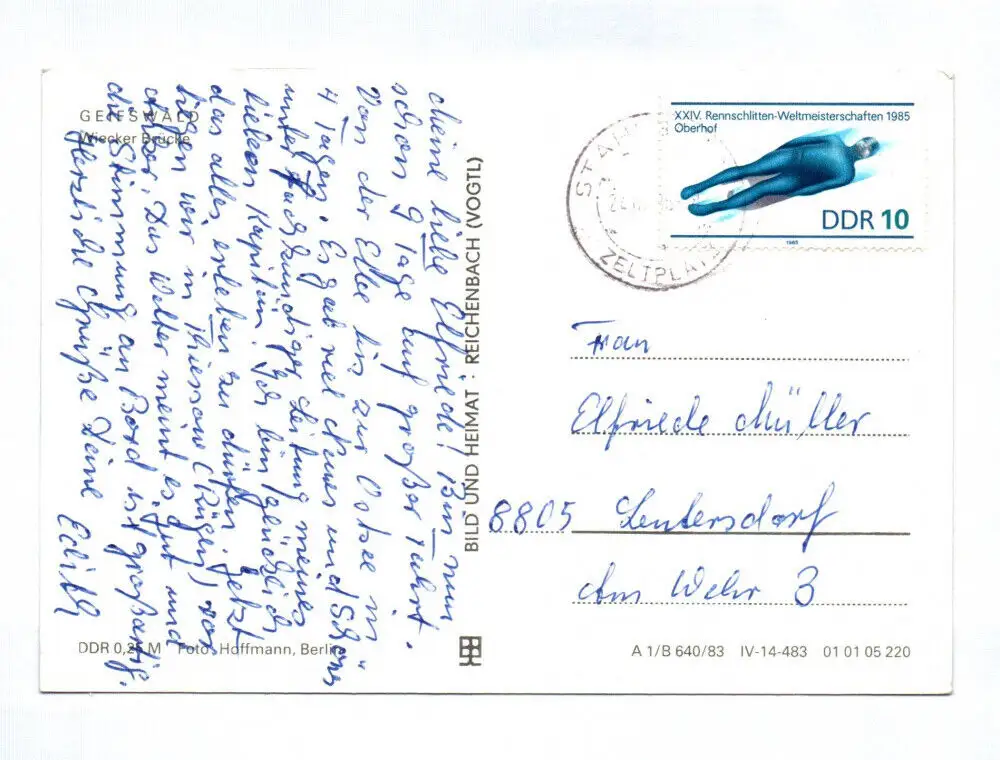 GEIFSWALD
Wiecker Brücke
Meine liebe Elfriede! Bin nun
schon 9 Tage auf großer Fahrt.
Von der Elbe bis zur Ostsee in
4 Tagen. Es gab viel Neues und Schönes
unter fachkundiger Leitung meines
lieben Kapitän. Ich bin glücklich
das alles erleben zu dürfen. Jetzt
liegen wir in Thiessow (Rügen) vor
Anker. Das Wetter meint es gut und
die Stimmung an Bord ist großartig.
Herzliche Grüße Deine Edith
DDR 0,25 M Foto: Hoffmann, Berlin
BILD UND HEIMAT : REICHENBACH (VOGTL)
XXIV. Rennschlitten-Weltmeisterschaften 1985
Oberhof
DDR 10
1985
ZELTPLATZ
Frau
Elfriede Müller
8805 Leutersdorf
Am Wehr 3
A 1/B 640/83 IV-14-483 01 01 05 220